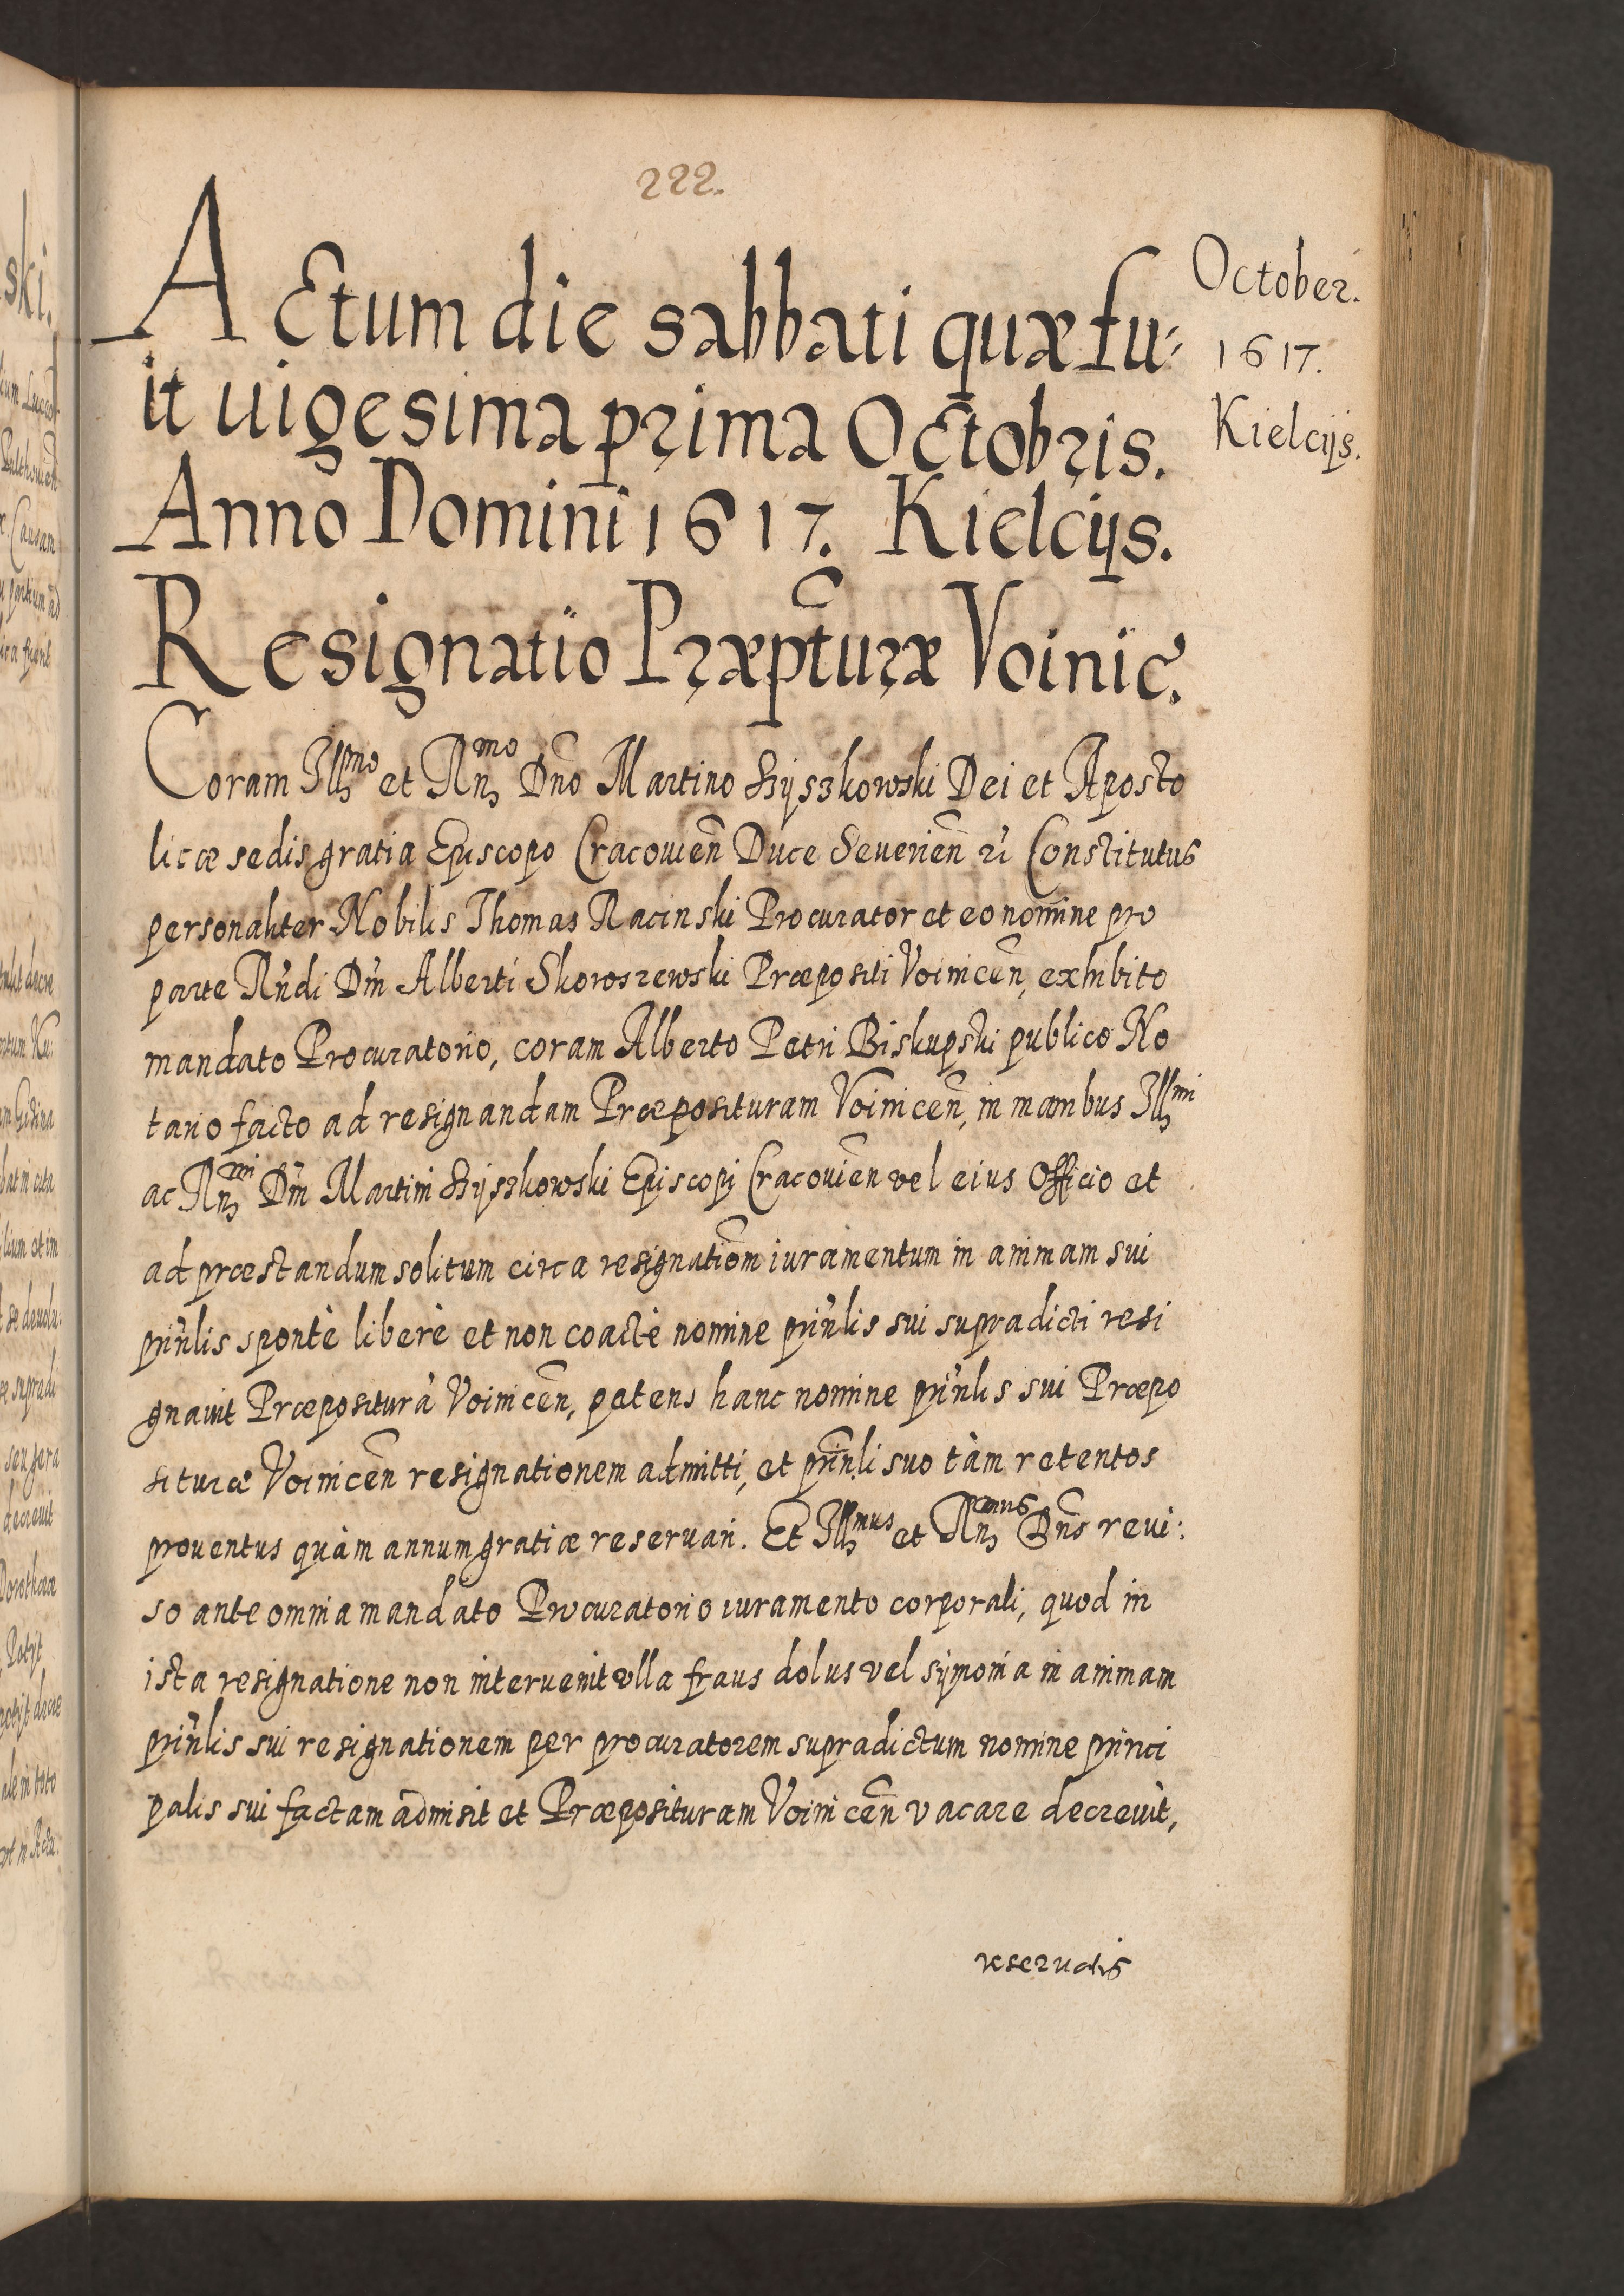 222.
October.
1617.
Kielcijs.
ACtum die sabbati quæ fu:
it uigesima prima Octobris.
Anno Domini 1617. Kielcijs.
Resignatio Præpturæ Voinic̃.
Coram Illmo et Rnmo Dño Martino Szyszkowski Dei et Aposto
licæ sedis gratia Episcopo Cracouien̄ Duce Seuerien̄ Constitutus
personaliter Nobilis Thomas Racinski Procurator et eo nomine pro
parte Rn̄di Dn̄i Alberti Skoroszewski Præpositi Voinicen̄, exhibito
mandato Procuratorio, coram Alberto Petri Biskupski publico No
tario facto ad resignandam Præposituram Voinicen̄, in manibus Illmi
ac Rnmi Dn̄i Martini Szyszkowski Episcopi Cracouien̄ vel eius Officio et
ad præstandum solitum circa resignatiōm iuramentum in animam sui
prin̄lis sponte libere et non coacte nomine prin̄lis sui supradicti resi
gnauit Præpositurā Voinicen̄, petens hanc nomine prin̄lis sui Præpo
situræ Voinicen̄ resignationem admitti, et prin̄li suo tàm retentos
prouentus quàm annum gratiæ reseruari. Et Illmus et Rnmus Dn̄s reui:
so ante omnia mandato Procuratorio iuramento corporali, quod in
ista resignatione non interuenit vlla fraus dolus vel symonia in animam
prin̄lis sui resignationem per procuratorem supradictum nomine princi
palis sui factam admisit et Præposituram Voinicen̄ vacare decreuit,
reseruatis